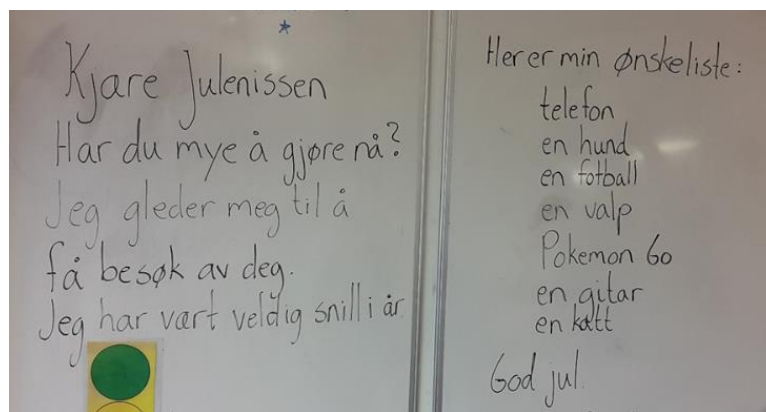 Kjare Julenissen
Har du mye å gjøre nå?
Jeg gleder meg til å
få besøk av deg.
Jeg har vært veldig snill i år
Her er min ønskeliste:
telefon
en hund
en fotball
en valp
Pokemon Go
en gitar
en katt
God jul.